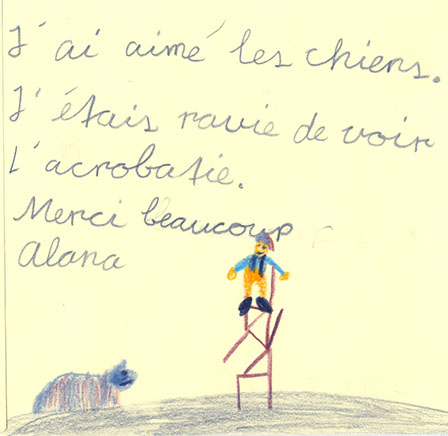 J'ai aimé les chiens.
J'étais ravie de voir
l'acrobatie.
Merci beaucoup
Alana